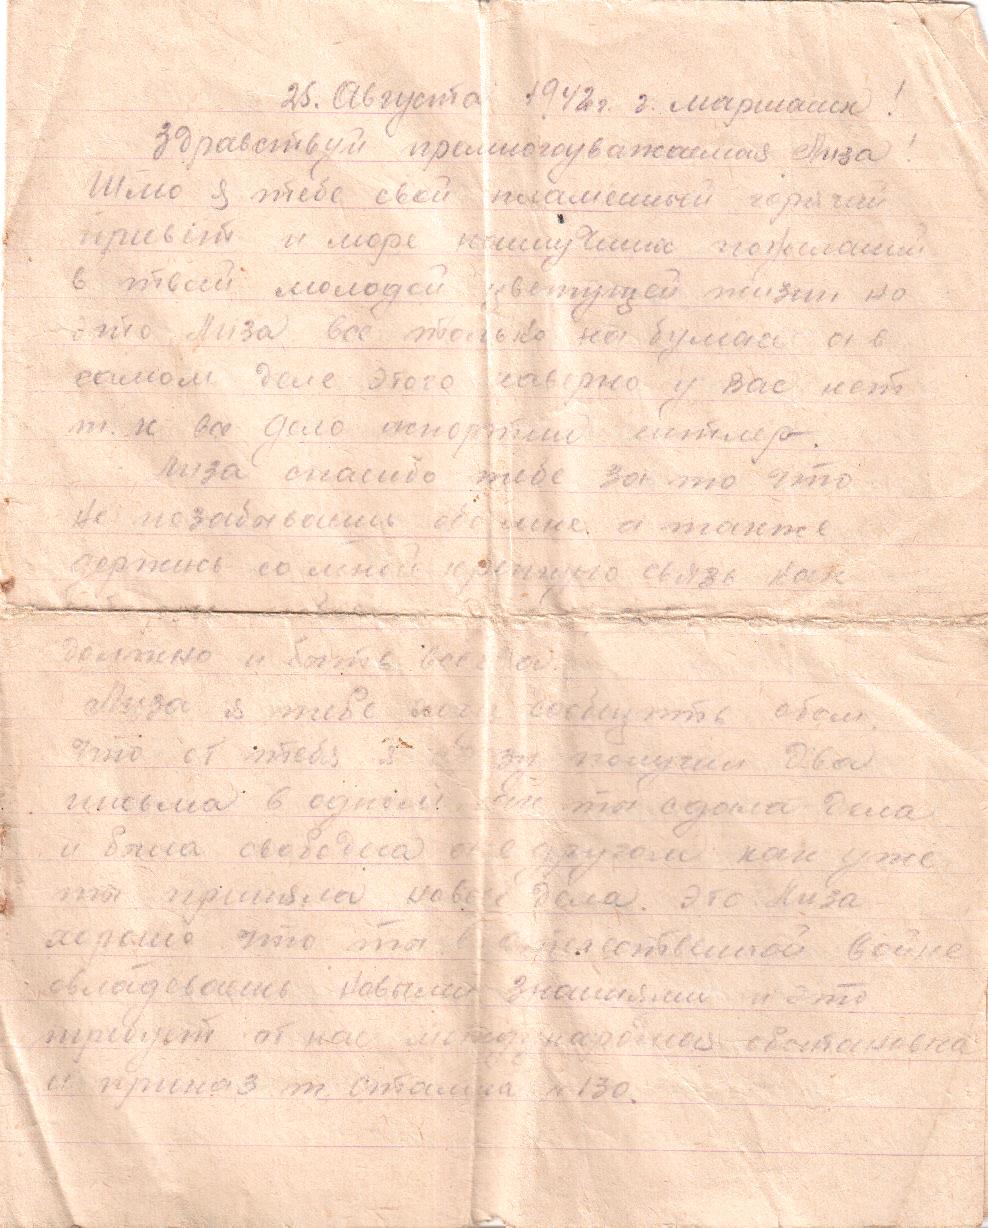 25. Августа 1942 г. г. маршанск!
Здравствуй премногоуважаемая Лиза!
Шлю я тебе свой пламенный горячий
привет и море наилучших пожеланий
в твоей молодой цветущей жизни но
это Лиза все только на бумаге а в
самом деле этого наверно у вас нет
т. к все дело испортил гитлер.
Лиза спасибо тебе за то что
не позабываешь обо мне а также
держишь со мной крепкую связь как
должно и быть всегда.
Лиза я тебе хочу сообщить о том,
что от тебя я сразу получил два
письма в одном как ты сдала дела
и была свободна а в другом как уже
ты приняла новые дела. Это Лиза
хорошо что ты в отечественной войне
овладеваешь новыми знаниями и это
требует от нас международная обстановка
и приказ т. Сталина №130.